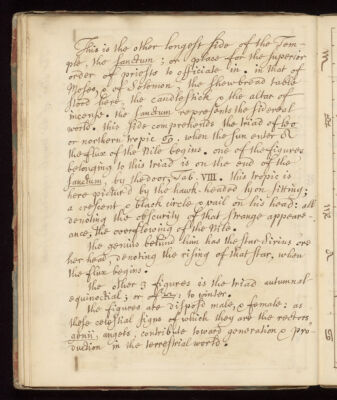 This is the other longest side of the Tem-
ple, the sanctum; or place for the superior
order of priests to officiate in. in that of
Moses, & of Solomon, the shewbread table
stood here, the candlestick & the altar of
incense. the sanctum represents the sidereal
world. this side comprehends the triad of leo
or northern tropic ♋, when the sun enter &
the flux of the Nile begins. one of the figures
belonging to this triad is on the end of the
sanctum, by the door, Tab. VIII. this tropic is
here pictur'd by the hawk-headed lyon sitting;
a crescent & black circle & vail on his head: all
denoting the obscurity of that strange appeare-
ance, the overflowing of the Nile.
The genius behind him has the star Sirius ore
her head, denoting the rising of that star, when
the flux begins.
the other 3 figures is the triad autumnal
equinoctial; or to winter.
the figures are dispos'd male, & female; as
those celestial signs of which they are the rectors
genii, angels, contribute toward generation & pro-
duction in the terrestrial world.
m